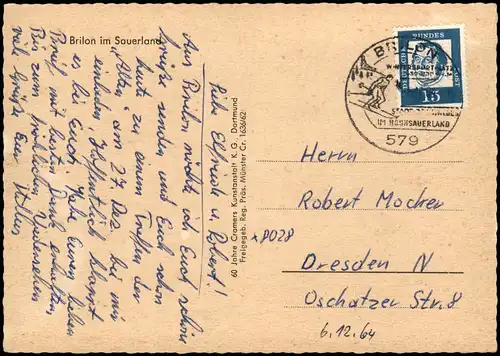 Brilon im Sauerland
Liebe Elfriede u. Robert!
Aus Brilon möchte ich Euch schöne
Grüße senden und Euch schon
heute zu einem Treffen der
"Alten" am 27. Dez. bei mir
einladen. Hoffentlich klappt
es bei Euch. Habe Euren lieben
Brief mit bestem Dank erhalten.
Bis zum fröhlichen Wiedersehen
viele Grüße Eur
60 Jahre Cramers Kunstanstalt K. G., Dortmund
Freigegeb. Reg. Präs. Münster Nr. 1636/62
BRILON
WINTERSPORTPLATZ
IM HOCHSAUERLAND
579
DEUTSCHE BUNDESPOST
15
Herrn
Robert Modrer
x 8028
Dresden N
Oschatzer Str. 8
6.12.64